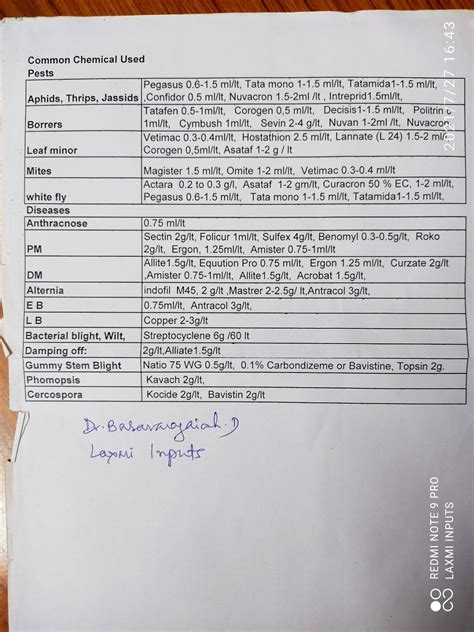 Common Chemical Used
Pests
Pegasus 0.6-1.5 ml/lt, Tata mono 1-1.5 ml/lt, Tatamida1-1.5 ml/lt,
Aphids, Thrips, Jassids ,Confidor 0.5 ml/lt, Nuvacron 1.5-2ml /lt , Intreprid1.5ml/lt,
Tatafen 0.5-1ml/lt, Corogen 0,5 ml/lt, Decisis1-1.5 ml/lt, Politrin
Borrers 1ml/lt, Cymbush 1ml/lt, Sevin 2-4 g/lt, Nuvan 1-2ml /lt, Nuvacron
Vetimac 0.3-0.4ml/lt, Hostathion 2.5 ml/lt, Lannate (L 24) 1.5-2 ml/
Leaf minor Corogen 0,5ml/lt, Asataf 1-2 g / lt
Mites Magister 1.5 ml/lt, Omite 1-2 ml/lt, Vetimac 0.3-0.4 ml/lt
Actara 0.2 to 0.3 g/l, Asataf 1-2 gm/lt, Curacron 50 % EC, 1-2 ml/lt,
white fly Pegasus 0.6-1.5 ml/lt, Tata mono 1-1.5 ml/lt, Tatamida1-1.5 ml/lt,
Diseases
Anthracnose 0.75 ml/lt
Sectin 2g/lt, Folicur 1ml/lt, Sulfex 4g/lt, Benomyl 0.3-0.5g/lt, Roko
PM 2g/lt, Ergon, 1.25ml/lt, Amister 0.75-1ml/lt
Allite1.5g/lt, Equution Pro 0.75 ml/lt, Ergon 1.25 ml/lt, Curzate 2g/lt
DM ,Amister 0.75-1ml/lt, Allite1.5g/lt, Acrobat 1.5g/lt,
Alternia indofil M45, 2 g/lt ,Mastrer 2-2.5g/ lt,Antracol 3g/lt,
E B 0.75ml/lt, Antracol 3g/lt,
L B Copper 2-3g/lt
Bacterial blight, Wilt, Streptocyclene 6g /60 lt
Damping off: 2g/lt,Alliate1.5g/lt
Gummy Stem Blight Natio 75 WG 0.5g/lt, 0.1% Carbondizeme or Bavistine, Topsin 2g.
Phomopsis Kavach 2g/lt,
Cercospora Kocide 2g/lt, Bavistin 2g/lt
Dr. Basavarajaiah. D
Laxmi Inputs
16:43
REDMI NOTE 9 PRO
LAXMI INPUTS